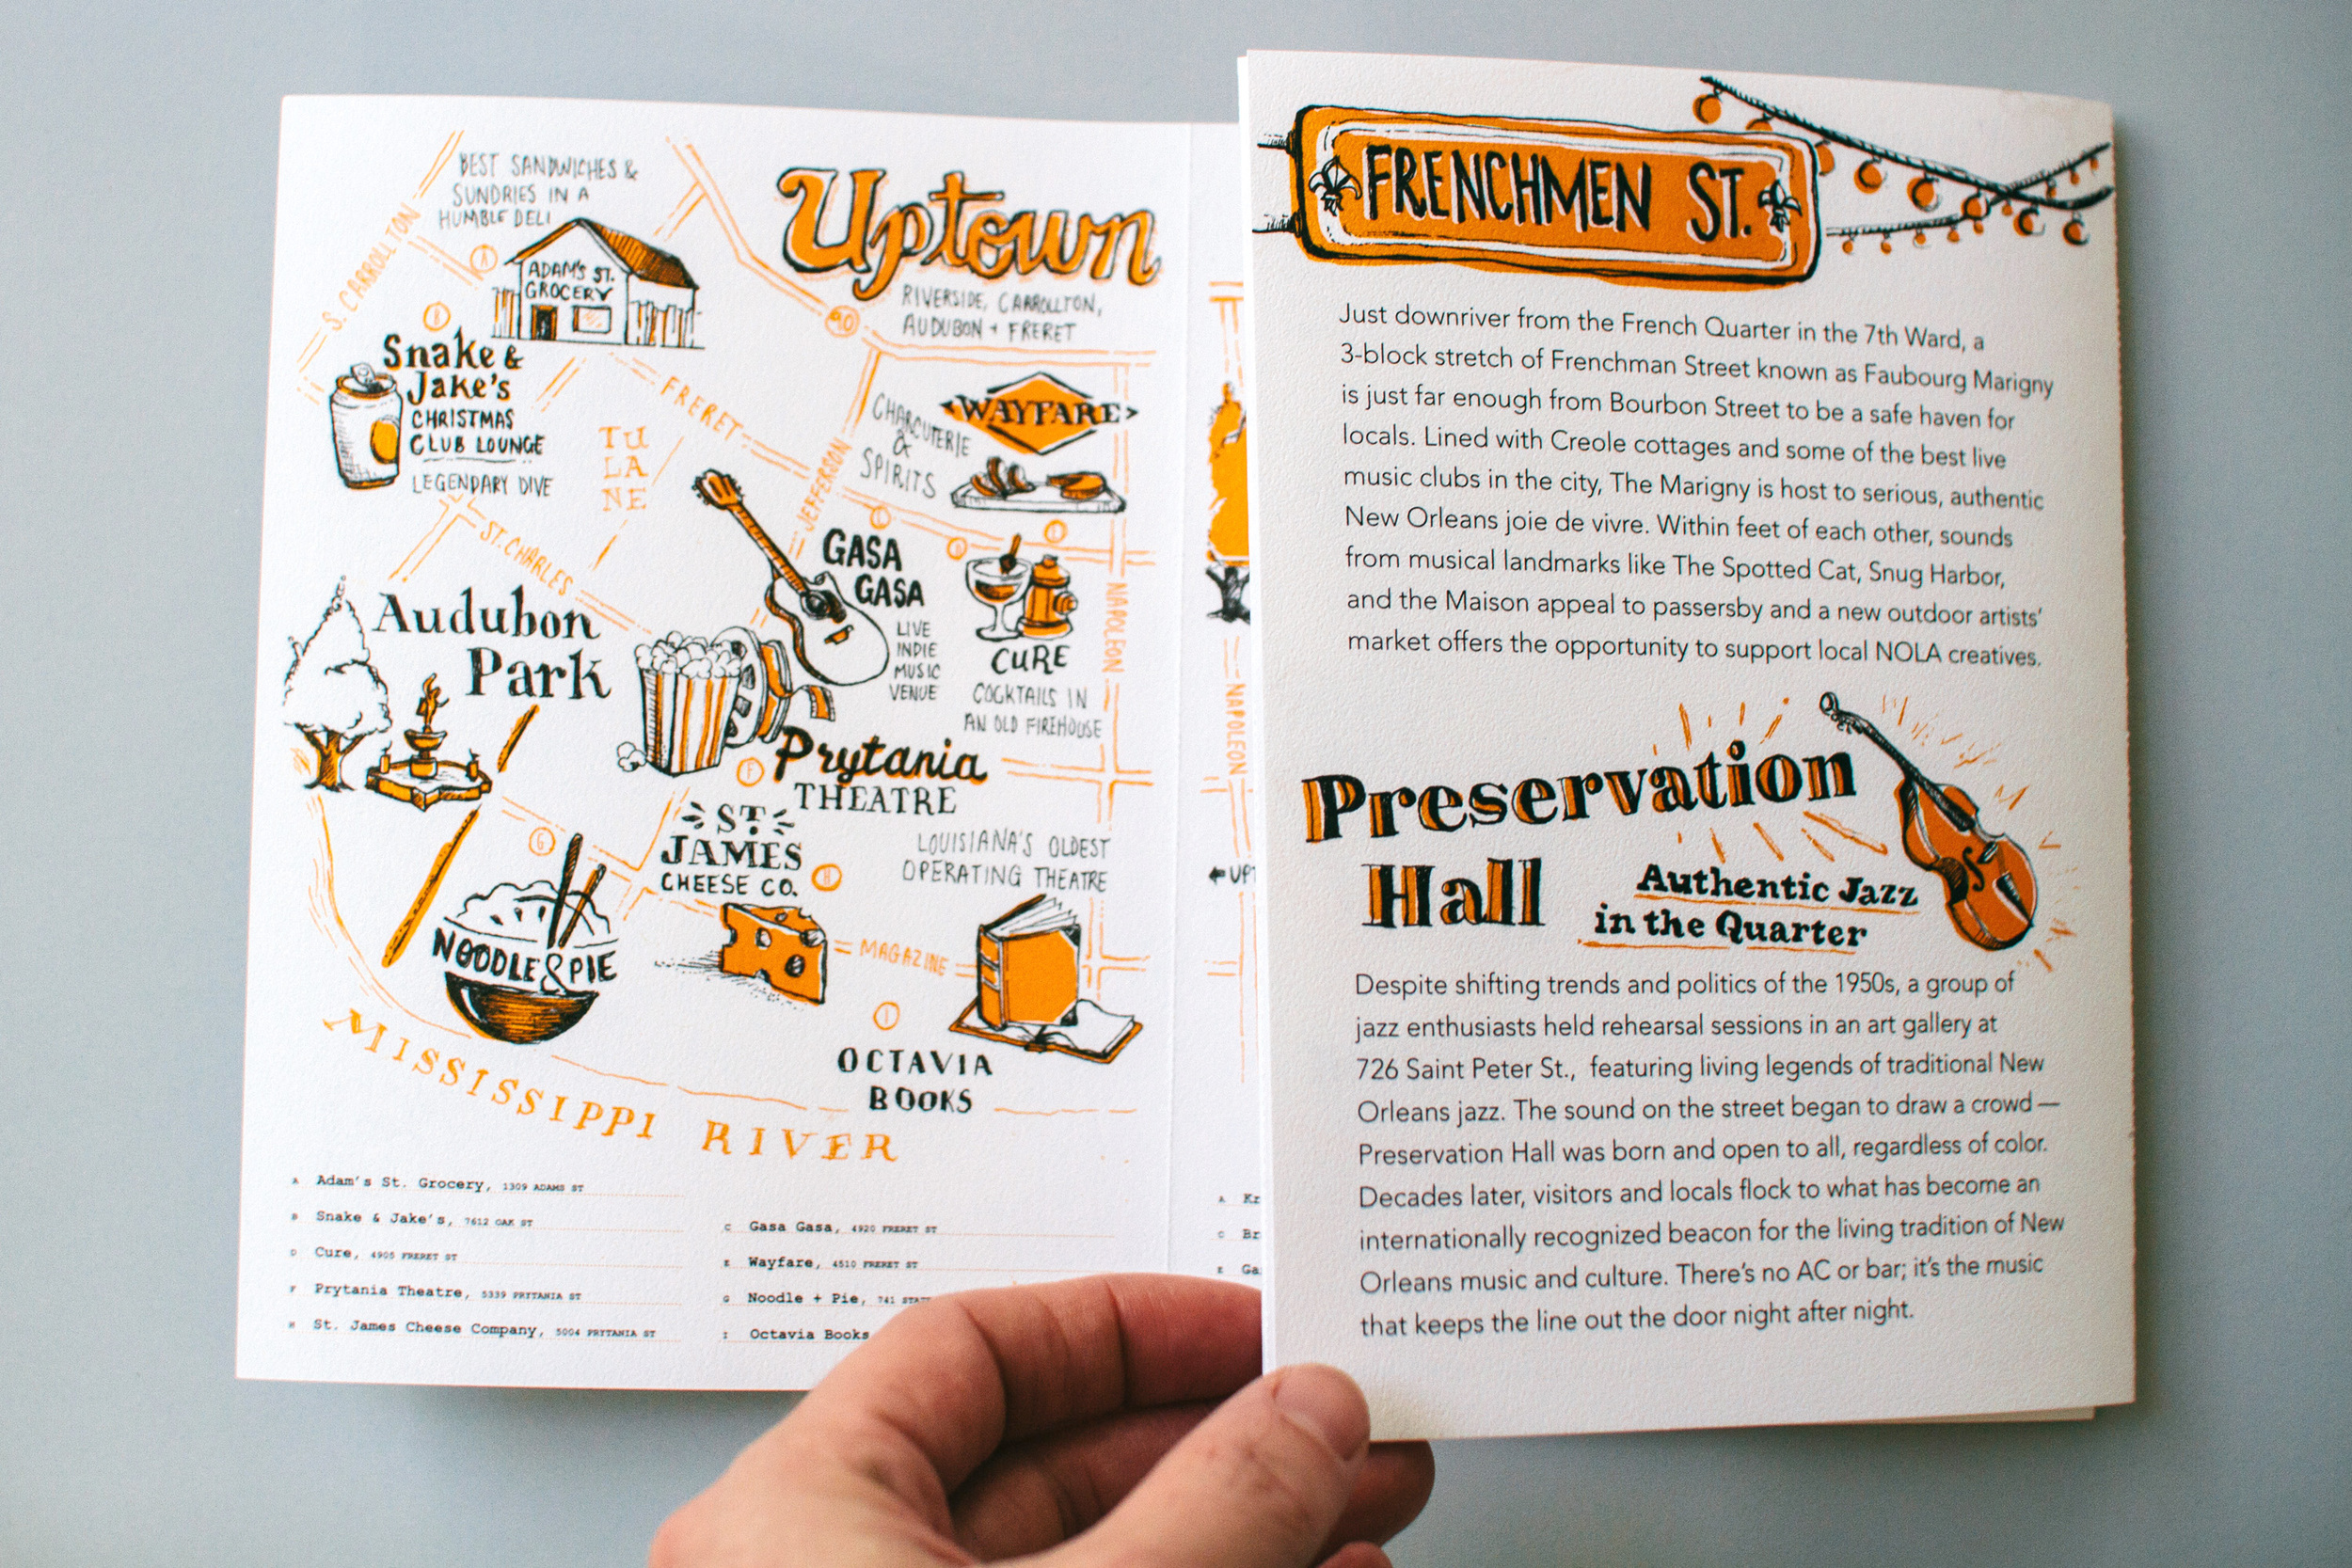 BEST SANDWICHES &
SUNDRIES IN A
HUMBLE DELI
S. CARROLLTON
A
ADAM'S ST.
GROCERY
Uptown
RIVERSIDE, CARROLLTON,
AUDUBON + FRERET
B
Snake &
Jake's
CHRISTMAS
CLUB LOUNGE
LEGENDARY DIVE
TU
LA
NE
FRERET
JEFFERSON
CHARCUTERIE
&
SPIRITS
WAYFARE
ST. CHARLES
C
D
E
GASA
GASA
LIVE
INDIE
MUSIC
VENUE
CURE
COCKTAILS IN
AN OLD FIREHOUSE
NAPOLEON
Audubon
Park
F
Prytania
THEATRE
LOUISIANA'S OLDEST
OPERATING THEATRE
G
ST.
JAMES
CHEESE CO.
H
NOODLE & PIE
MAGAZINE
I
OCTAVIA
BOOKS
MISSISSIPPI RIVER
A Adam's St. Grocery, 1309 ADAMS ST
B Snake & Jake's, 7612 OAK ST
D Cure, 4905 FRERET ST
F Prytania Theatre, 5339 PRYTANIA ST
H St. James Cheese Company, 5004 PRYTANIA ST
C Gasa Gasa, 4920 FRERET ST
E Wayfare, 4510 FRERET ST
G Noodle + Pie, 741
I Octavia Books
NAPOLEON
A
C
E
FRENCHMEN ST.
Just downriver from the French Quarter in the 7th Ward, a
3-block stretch of Frenchman Street known as Faubourg Marigny
is just far enough from Bourbon Street to be a safe haven for
locals. Lined with Creole cottages and some of the best live
music clubs in the city, The Marigny is host to serious, authentic
New Orleans joie de vivre. Within feet of each other, sounds
from musical landmarks like The Spotted Cat, Snug Harbor,
and the Maison appeal to passersby and a new outdoor artists'
market offers the opportunity to support local NOLA creatives.
Preservation
Hall
Authentic Jazz
in the Quarter
Despite shifting trends and politics of the 1950s, a group of
jazz enthusiasts held rehearsal sessions in an art gallery at
726 Saint Peter St., featuring living legends of traditional New
Orleans jazz. The sound on the street began to draw a crowd —
Preservation Hall was born and open to all, regardless of color.
Decades later, visitors and locals flock to what has become an
internationally recognized beacon for the living tradition of New
Orleans music and culture. There's no AC or bar; it's the music
that keeps the line out the door night after night.